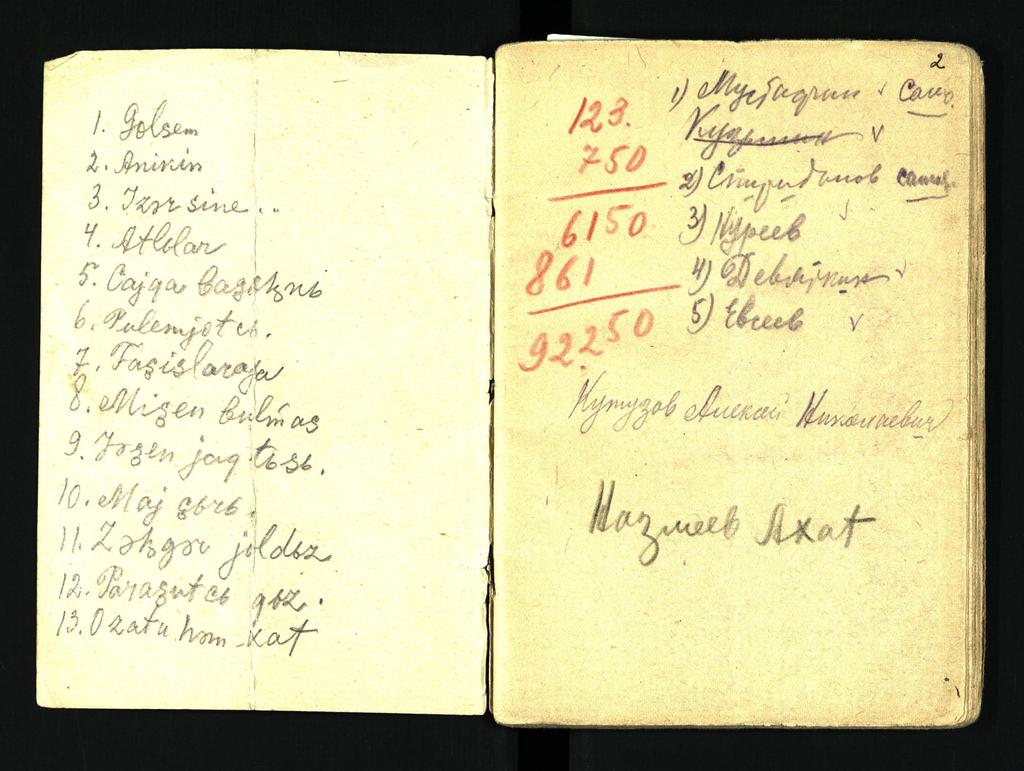 1. Golsem
2. Anikin
3. Izər sine..
4. Atlьlar
5. Cajqa
6. Pulemjotcь.
7. Faşislarƣa
8. Mişen bulmas
9. Irşen jaqtьşь.
10. Maj çьrь.
11. Zəhgər joldьz
12. Paraşutcь qьz.
13. Ozatu həm xat
2
123.
750
6150
861
92250
1) Мустафин
2) Спиридонов
3) Куреев
4) Девяткин
5) Евсеев
Кутузов Алексей Николаевич
Назмеев Ахат